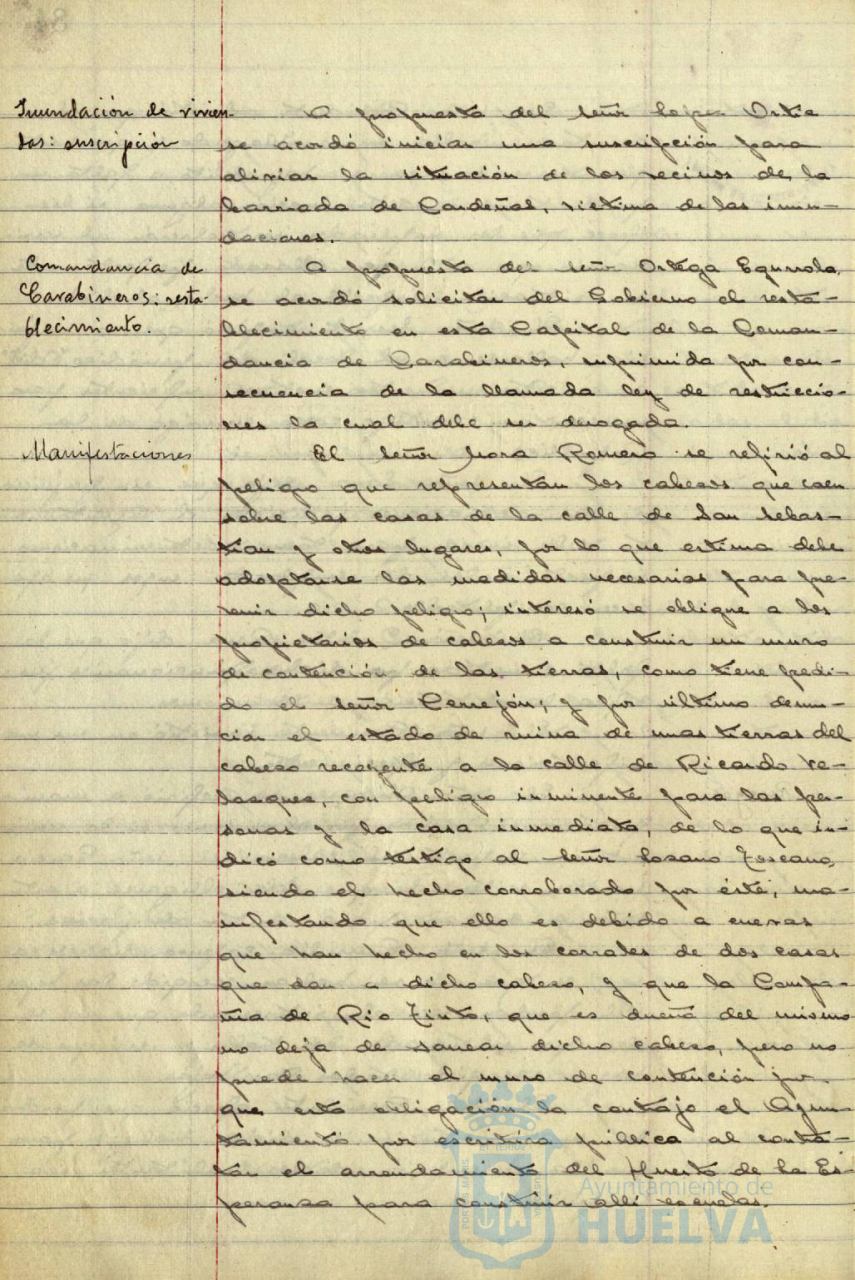 Inundación de vivien-
das: suscripción
A propuesta del señor López Ortiz
se acordó iniciar una suscripción para
aliviar la situación de los vecinos de la
barriada de Cardeñas, víctima de las inun-
daciones.
Comandancia de
Carabineros: resta-
blecimiento.
A propuesta del señor Ortega Egurrola,
se acordó solicitar del Gobierno el resta-
blecimiento en esta Capital de la Coman-
dancia de Carabineros, suprimida por con-
secuencia de la llamada ley de restriccio-
nes la cual debe ser derogada.
Manifestaciones
El señor Mora Romero se refirió al
peligro que representan los cabezos que caen
sobre las casas de la calle de San Sebas-
tian y otros lugares, por lo que estima debe
adoptarse las medidas necesarias para pre-
venir dicho peligro; interesó se obligue a los
propietarios de cabezos a construir un muro
de contención de las tierras, como tiene pedi-
do el señor Cerrejón; y por último denun-
cian el estado de ruina de unas tierras del
cabezo recayente a la calle de Ricardo Ve-
lasquez, con peligro inminente para las per-
sonas y la casa inmediata, de lo que in-
dicó como testigo al señor Lozano Toscano,
siendo el hecho corroborado por éste, ma-
nifestando que ello es debido a cuevas
que han hecho en los corrales de dos casas
que dan a dicho cabezo, y que la Compa-
ñia de Rio Tinto, que es dueña del mismo
no deja de sanear dicho cabezo, pero no
puede hacer el muro de contención por
que esta obligación la contrajo el Ayun-
tamiento por escritura pública al contra-
tar el arrendamiento del Huerto de la Es-
peranza para construir allí escuelas.
Ayuntamiento de
HUELVA